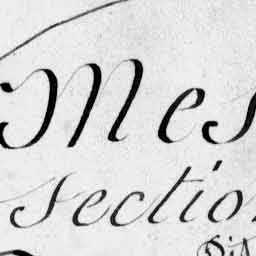 Mes
section